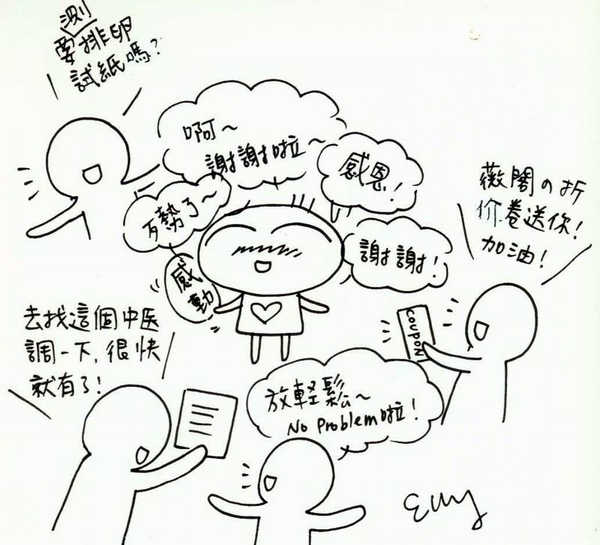 測
要排卵
試紙嗎?
啊~
謝謝啦~
感恩!
歹勢了~
謝謝!
感動
薇閣の折
价卷送你!
加油!
COUPON
去找這個中医
調一下, 很快
就有了!
放輕鬆~
No problem啦!